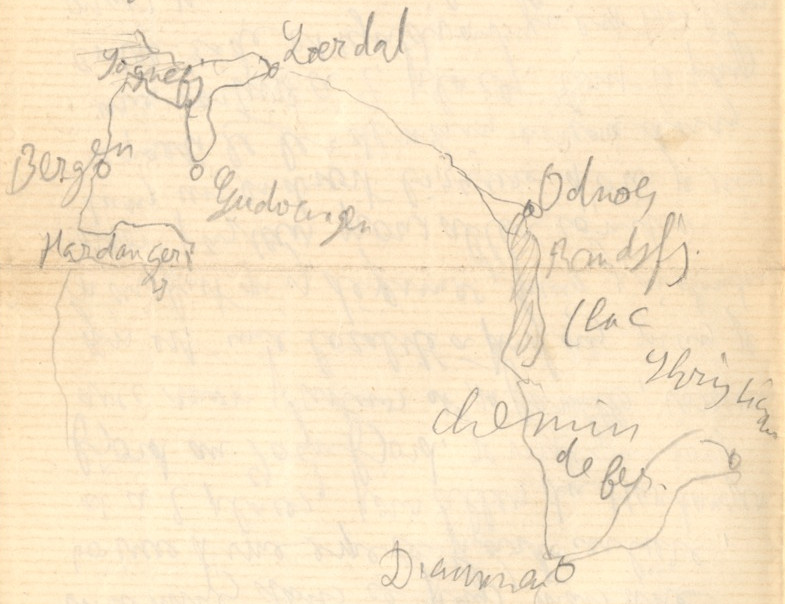 Lærdal
Sognefj
Bergen
Gudvangen
Odnoes
Hardangerfj
Randsfj.
(lac
Christiania
chemin
de fer.
Drammen